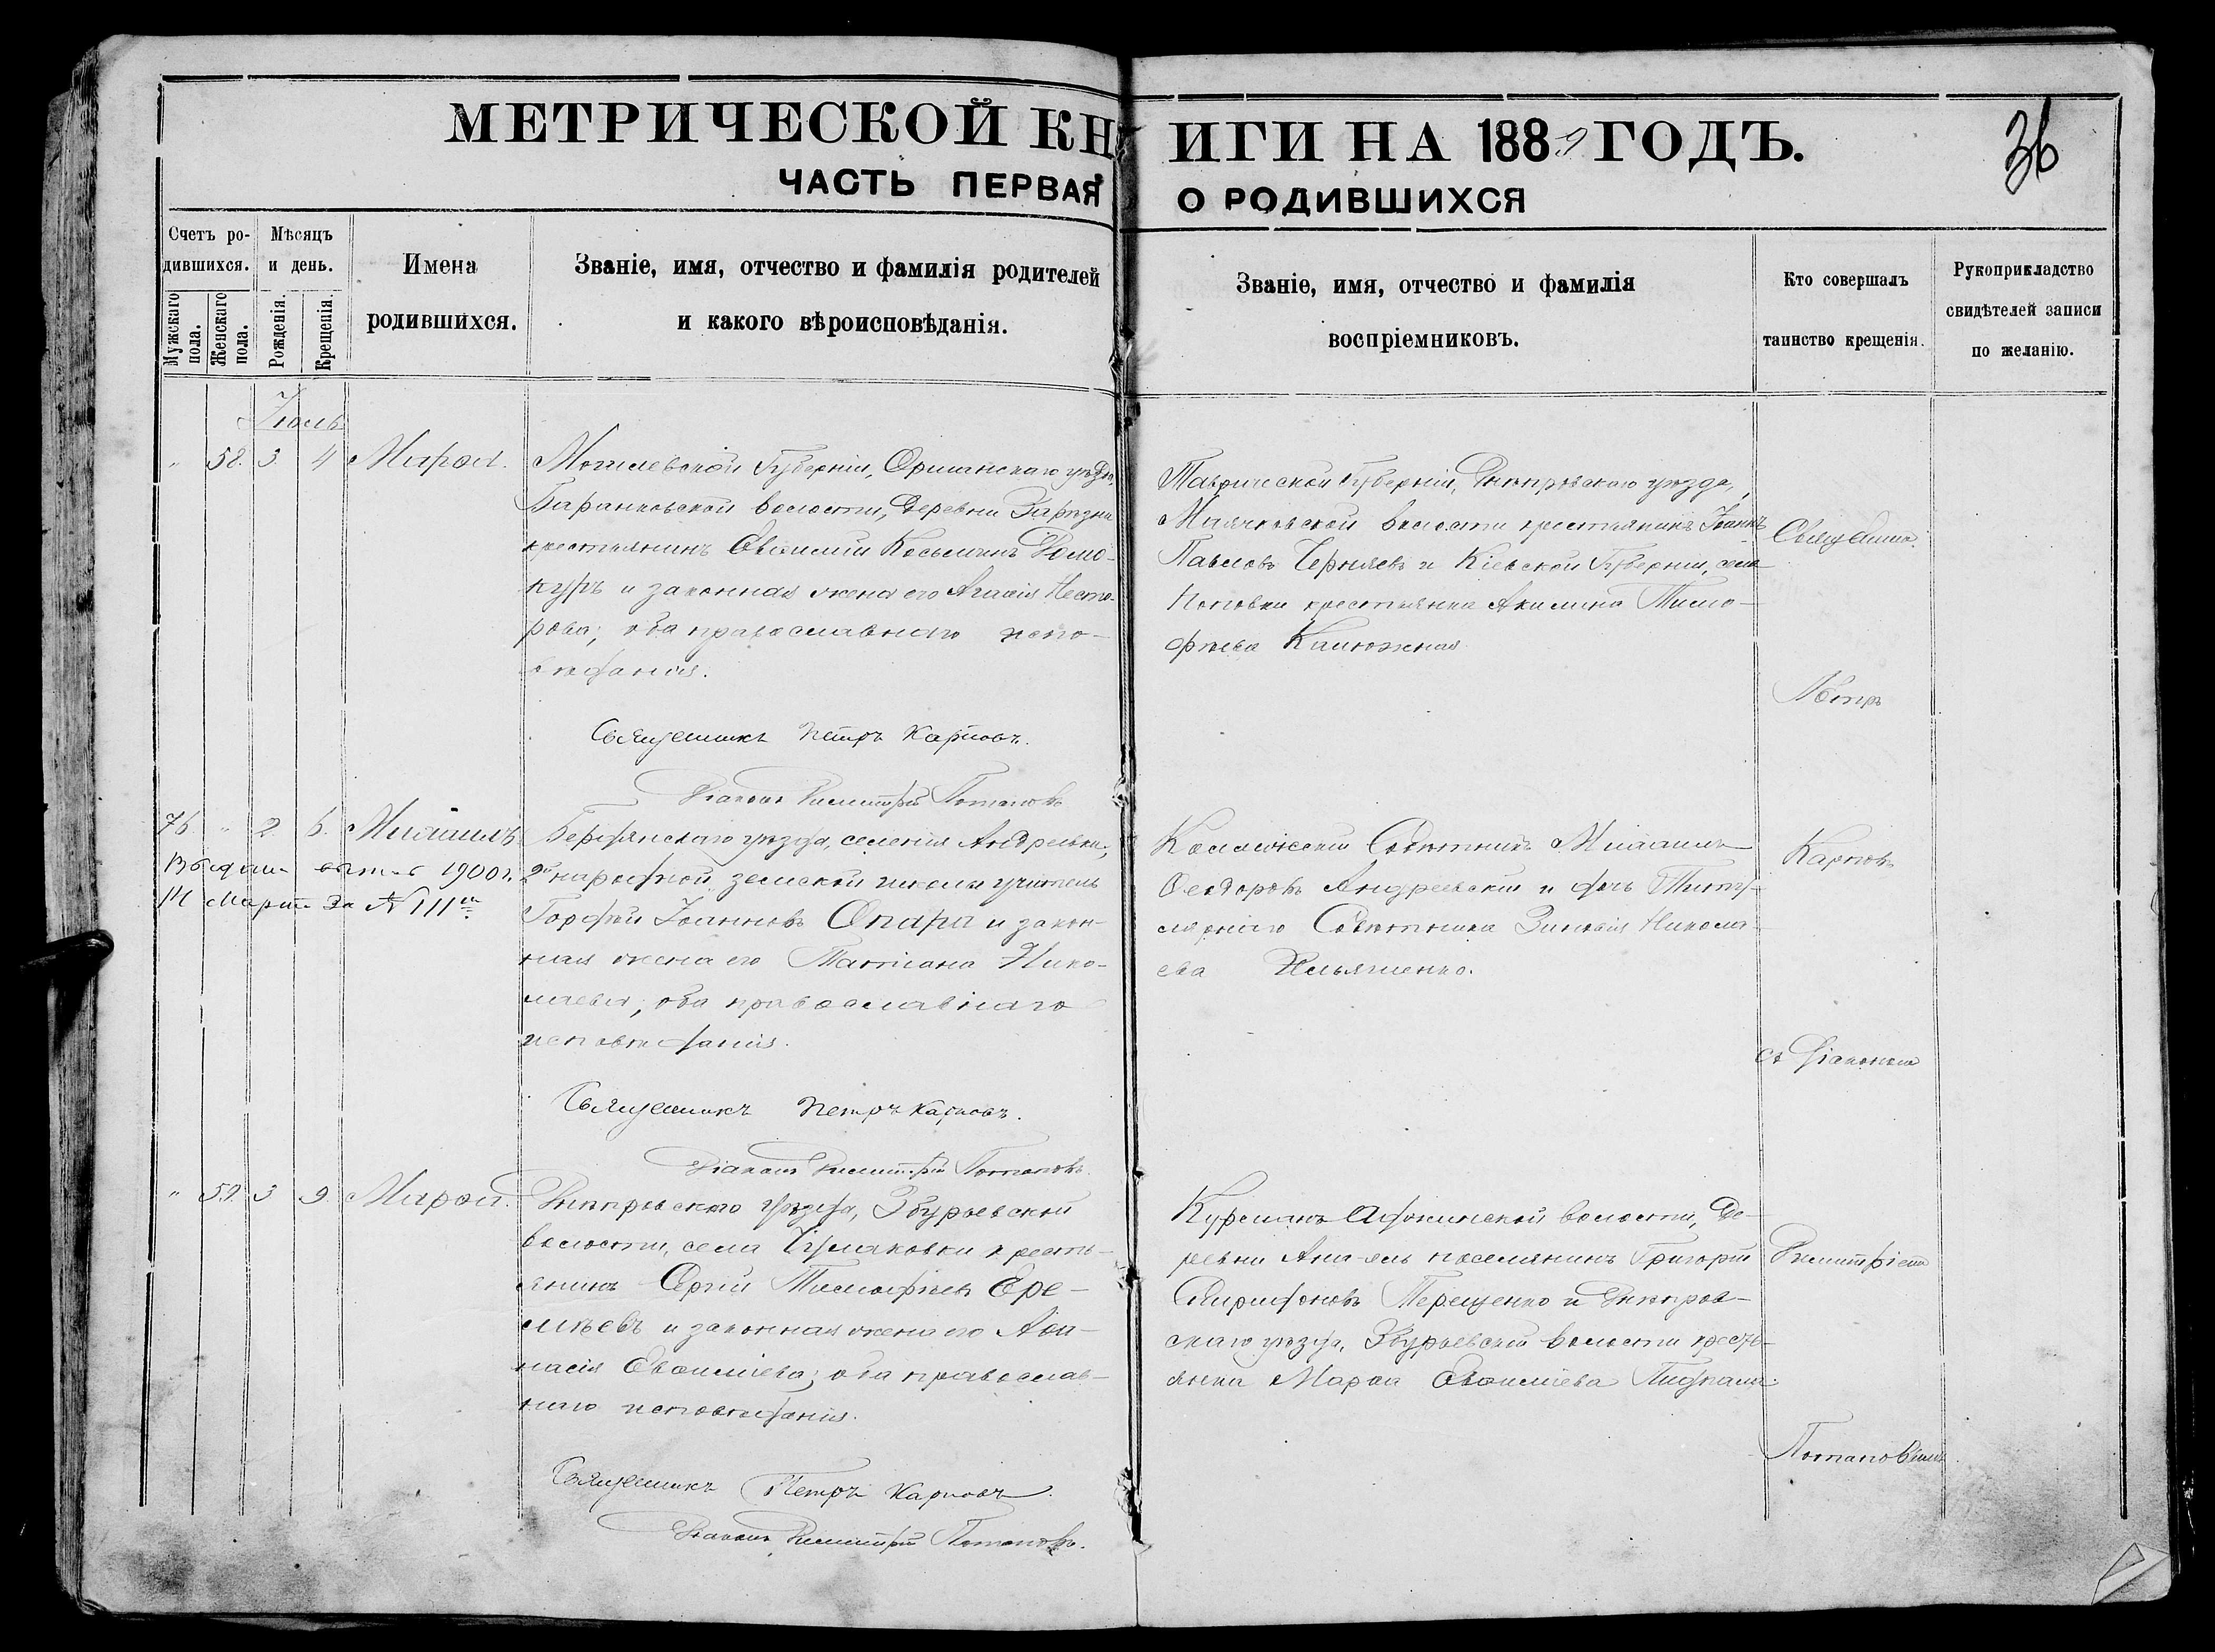 МЕТРИЧЕСКОЙ КНИГИ НА 1889 ГОДЪ.
36
ЧАСТЬ ПЕРВАЯ О РОДИВШИХСЯ
Счетъ родившихся.
Мужскаго пола.
Женскаго пола.
Мѣсяцъ и день.
Рожденія.
Крещенія.
Имена родившихся.
Званіе, имя, отчество и фамилія родителей
и какого вѣроисповѣданія.
Званіе, имя, отчество и фамилія
воспріемниковъ.
Кто совершалъ
таинство крещенія.
Рукоприкладство
свидѣтелей записи
по желанію.
Іюль
" 58. 3. 4 Марѳа.
Могилевской Губерніи, Оршанскаго уѣзда,
Баранковской волости, деревни
крестьянинъ Евѳимій Косьминъ Домо-
куръ и законная жена его Агаѳія Несто-
рова; оба православнаго испо-
вѣданія.
Священникъ Петръ Карповъ.
Діаконъ Димитрій Потаповъ
Таврической Губерніи, Днѣпровскаго уѣзда,
Маячковской волости крестьянинъ Іоаннъ
Павловъ Черняевъ и Кіевской Губерніи, села
Поповки крестьянка Акилина Тимо-
фѣева Калюжная
76. " 2 6. Михаилъ.
Выдана 1900 г.
14 Марта за № 111
Бердянскаго уѣзда, селенія Андреевки,
2й народной земской школы учитель
Гордѣй Іоанновъ Опара и закон-
ная жена его Татіана Нико-
лаева; оба православнаго
исповѣданія.
Священникъ Петръ Карповъ.
Діаконъ Димитрій Потаповъ.
Коллежскій Совѣтникъ Михаилъ
Ѳеодоровъ Андреевскій и дочь Титу-
лярнаго Совѣтника Зиновія Никола-
ева Ильяшенко.
" 59. 3 9. Марѳа.
Днѣпровскаго уѣзда, Збурьевской
волости, села Чулаковки кресть-
янинъ Сергій Тимофѣевъ Ере-
мѣевъ и законная жена его Аѳа-
насія Евѳиміева; оба православ-
наго исповѣданія.
Священникъ Петръ Карповъ.
Діаконъ Димитрій Потаповъ.
Курманъ волости, де-
ревни поселянинъ Григорій
Спиридоновъ Терещенко и Днѣпров-
скаго уѣзда, Збурьевской волости кресть-
янка Марѳа Евѳиміева
Священникъ
Петръ
Карповъ
съ діакономъ
Димитріемъ
Потаповымъ